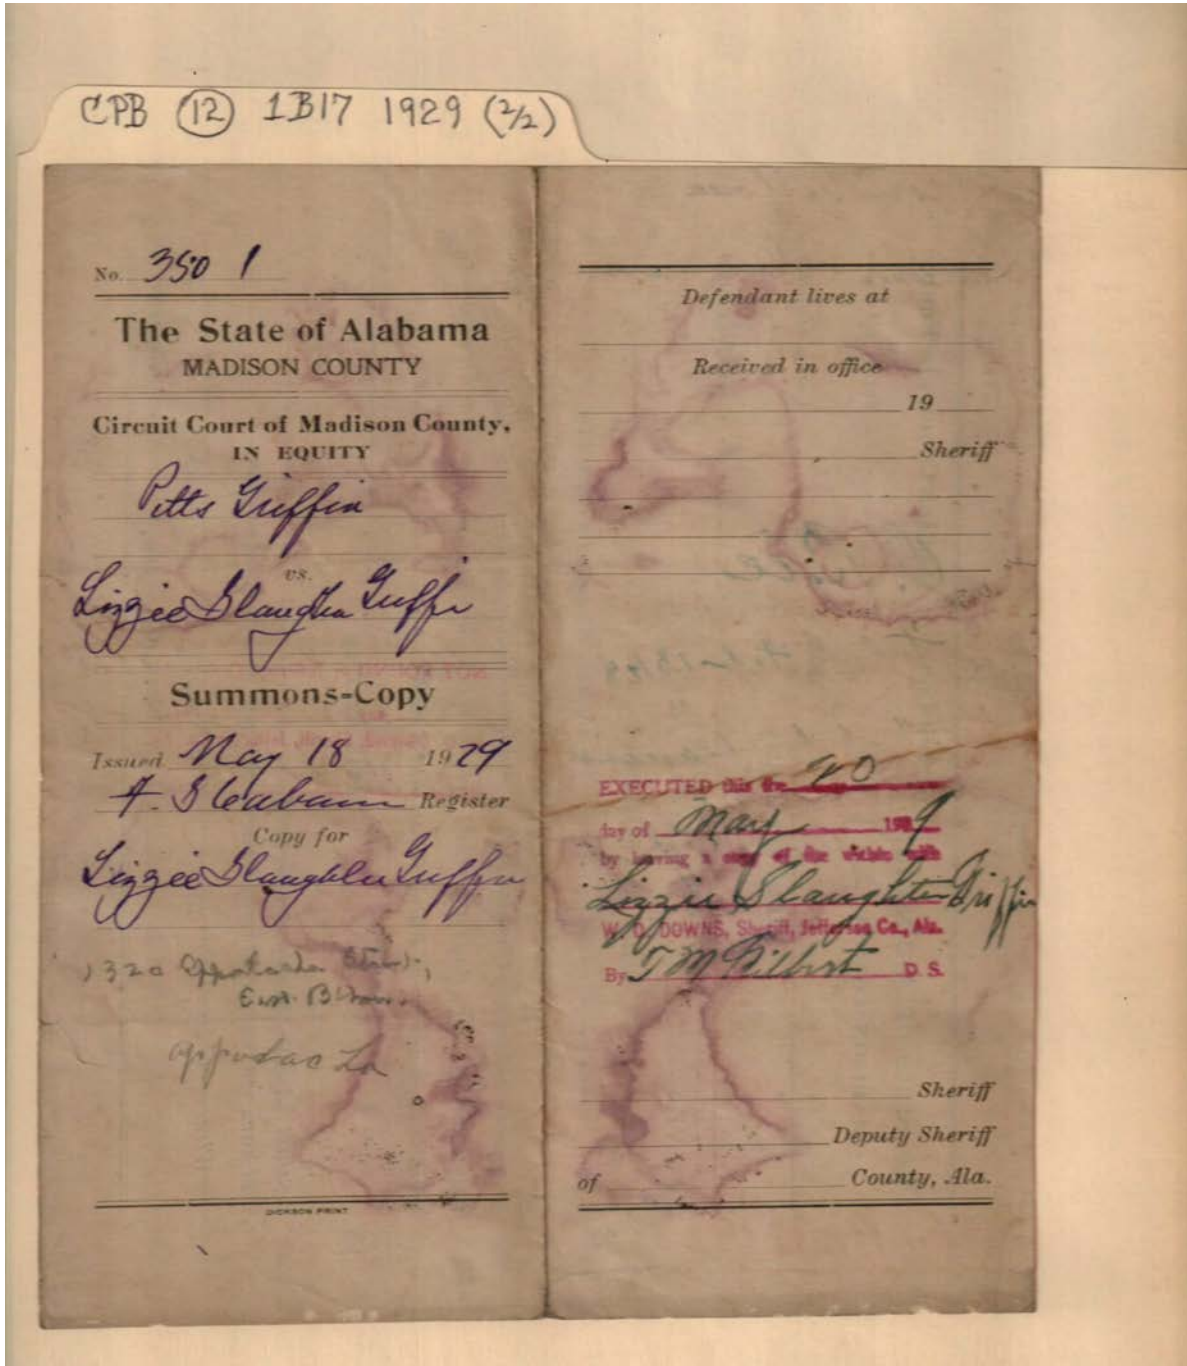 CPB (12) 1B17 1929 (2/2)
No. 350 1
The State of Alabama
MADISON COUNTY
Circuit Court of Madison County,
IN EQUITY
Pitts Griffin
vs.
Lizzie Slaughter Griffin
Summons-Copy
Issued May 18 1929
Register
Copy for
Lizzie Slaughter Griffin
1320
East B'ham.
DICKSON PRINT
Defendant lives at
Received in office
19
Sheriff
EXECUTED this the 20
day of May 1929
by leaving a copy of the within with
Lizzie Slaughter Griffin
W. D. DOWNS, Sheriff, Jefferson Co., Ala.
By T M Gilbert D. S.
Sheriff
Deputy Sheriff
of County, Ala.